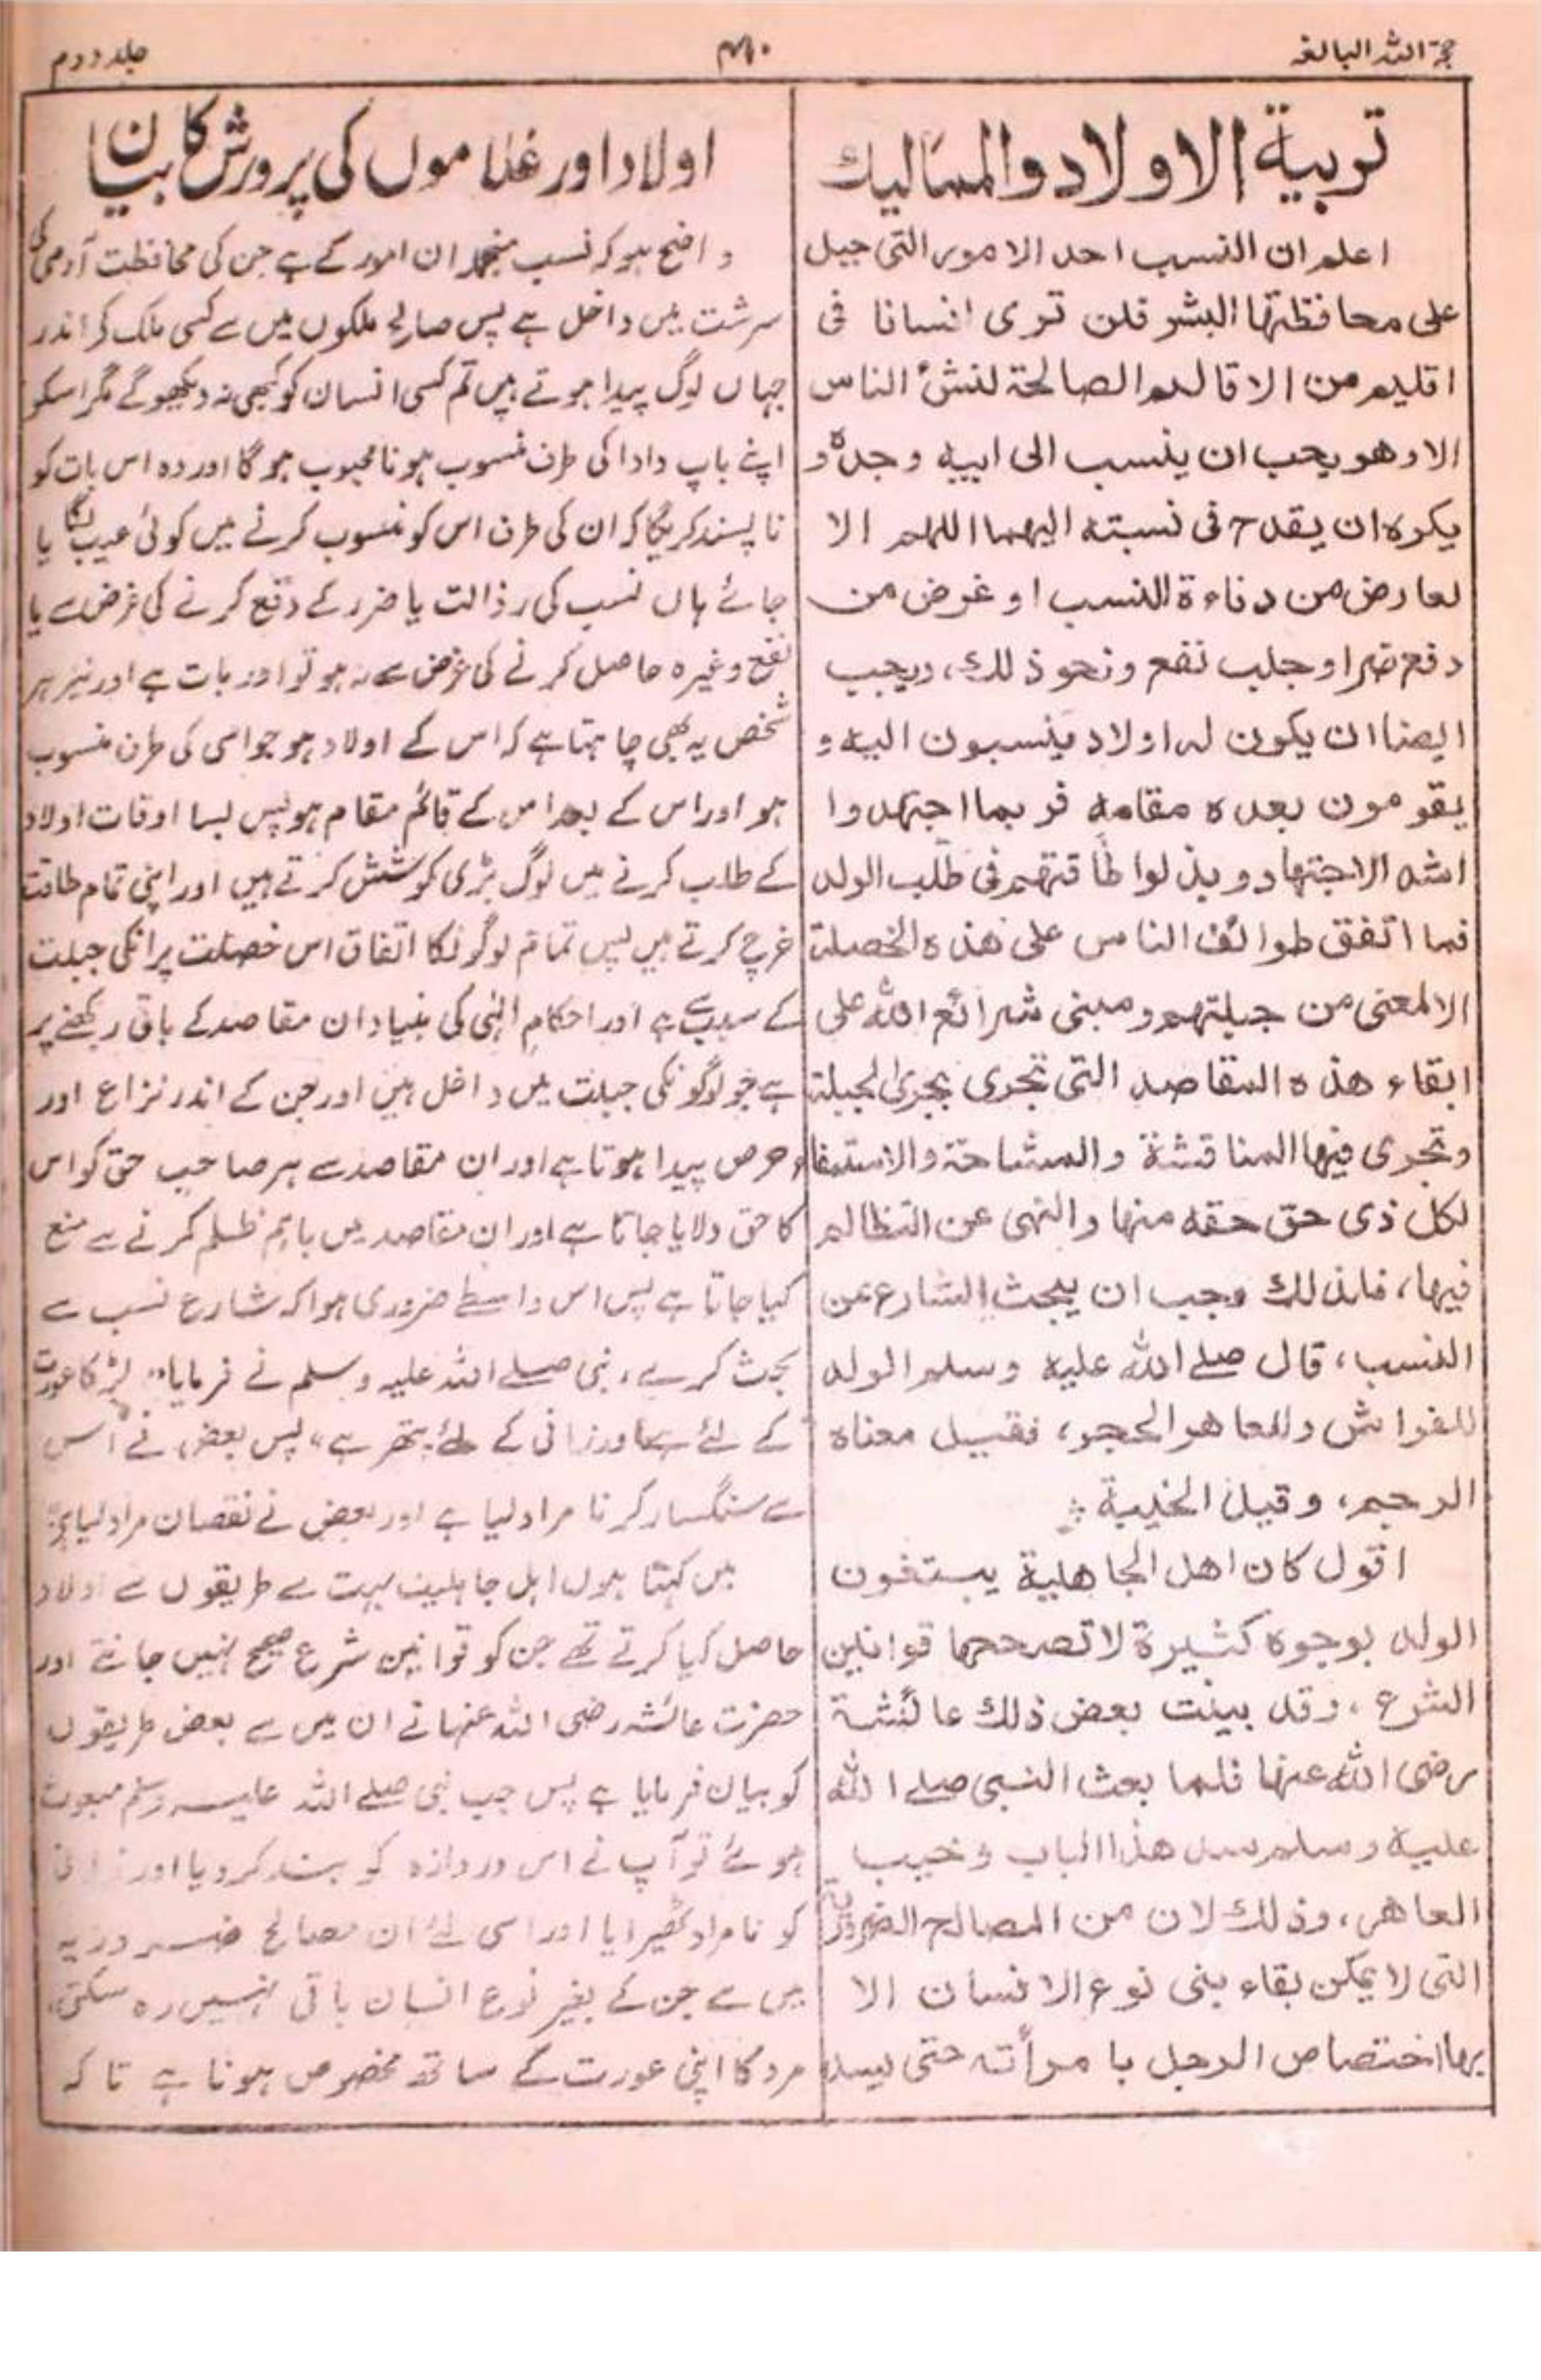 حجۃ اللہ البالغہ
۴۴۰
جلد دوم
تربية الاولاد والمماليك
اعلم ان النسب احد الامور التى جبل
على محافظتها البشر فلن ترى انسانا فى
اقليم من الاقاليم الصالحة لنشئ الناس
الا وهو يحب ان ينسب الى ابيه وجده و
يكره ان يقدح فى نسبته اليهما اللهم الا
لعارض من دناءة النسب او غرض من
دفع ضر او جلب نفع ونحو ذلك، ويحب
ايضا ان يكون له اولاد ينسبون اليه و
يقومون بعده مقامه فربما اجتهدوا
اشد الاجتهاد وبذلوا طاقتهم فى طلب الولد
فما اتفق طوائف الناس على هذه الخصلة
الا لمعنى من جبلتهم ومبنى شرائع الله على
ابقاء هذه المقاصد التى تجرى بجرى الجبلة
وتجرى فيها المناقشة والمشاحة والاستيفاء
لكل ذى حق حقه منها والنهى عن التظالم
فيها، فلذلك وجب ان يبحث الشارع عن
النسب، قال صلے الله عليه وسلم الولد
للفراش وللعاهر الحجر، فقيل معناه
الرجم، وقيل الخيبة
اقول كان اهل الجاهلية يبتغون
الولد بوجوه كثيرة لا تصححها قوانين
الشرع، وقد بينت بعض ذلك عائشة
رضى الله عنها فلما بعث النبى صلے الله
عليه وسلم سد هذا الباب وخيب
العاهر، وذلك لان من المصالح الضرورية
التى لا يمكن بقاء بنى نوع الانسان الا
بها اختصاص الرجل بامرأته حتى يسد
اولاد اور غلاموں کی پرورش کا بیان
واضح ہو کہ نسب منجملہ ان امور کے ہے جن کی محافظت آدمی کی
سرشت میں داخل ہے پس صالح ملکوں میں سے کسی ملک کے اندر
جہاں لوگ پیدا ہوتے ہیں تم کسی انسان کو کبھی نہ دیکھو گے مگر اسکو
اپنے باپ دادا کی طرف منسوب ہونا محبوب ہو گا اور وہ اس بات کو
نا پسند کریگا کہ ان کی طرف اس کو منسوب کرنے میں کوئی عیب لگایا
جائے ہاں نسب کی رذالت یا ضرر کے دفع کرنے کی غرض سے یا
نفع وغیرہ حاصل کرنے کی غرض سے نہ ہو تو اور بات ہے اور نیز ہر
شخص یہ بھی چاہتا ہے کہ اس کے اولاد ہو جو اسی کی طرف منسوب
ہو اور اس کے بعد اس کے قائم مقام ہو پس بسا اوقات اولاد
کے طلب کرنے میں لوگ بڑی کوشش کرتے ہیں اور اپنی تمام طاقت
خرچ کرتے ہیں پس تمام لوگونکا اتفاق اس خصلت پر انکی جبلت
کے سبب سے ہے اور احکام الٰہی کی بنیاد ان مقاصد کے باقی رکھنے پر
ہے جو لوگونکی جبلت میں داخل ہیں اور جن کے اندر نزاع اور
حرص پیدا ہوتا ہے اور ان مقاصد سے ہر صاحب حق کو اس
کا حق دلایا جاتا ہے اور ان مقاصد میں باہم ظلم کرنے سے منع
کیا جاتا ہے پس اس واسطے ضروری ہوا کہ شارع نسب سے
بحث کرے، نبی صلے اللہ علیہ وسلم نے فرمایا" لڑکا عورت
کے لئے ہے اور زانی کے لئے پتھر ہے، پس بعض نے اس
سے سنگسار کرنا مراد لیا ہے اور بعض نے نقصان مراد لیا ہے
میں کہتا ہوں اہل جاہلیت بہت سے طریقوں سے اولاد
حاصل کیا کرتے تھے جن کو قوانین شرع صحیح نہیں جانتے اور
حضرت عائشہ رضی اللہ عنہا نے ان میں سے بعض طریقوں
کو بیان فرمایا ہے پس جب نبی صلے اللہ علیہ وسلم مبعوث
ہوئے تو آپ نے اس دروازہ کو بند کر دیا اور زانی
کو نامراد ٹھیرایا اور اسی لئے ان مصالح ضروریہ
میں سے جن کے بغیر نوع انسان باقی نہیں رہ سکتی،
مرد کا اپنی عورت کے ساتھ مخصوص ہونا ہے تا کہ